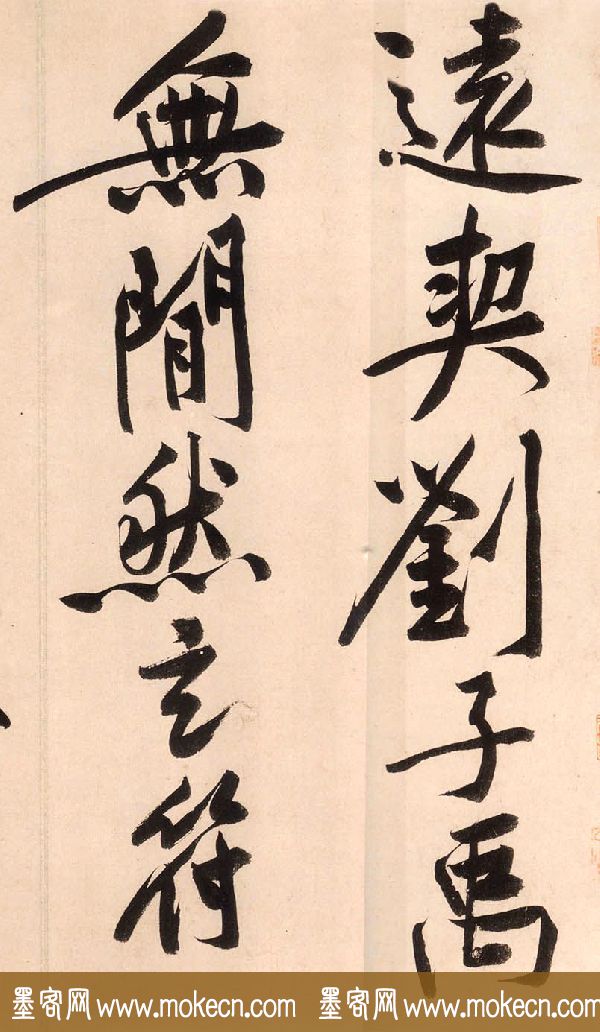 遠契劉子禹
無間然玄符
墨客网 www.mokecn.com 墨客网 www.mokecn.com